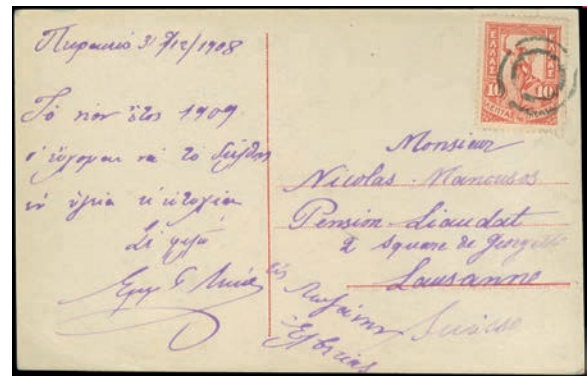 Πειραιεύς 31/12/1908
Τό νέον ἔτος 1909
εὔχομαι νά τό διέλθῃς
ἐν ὑγιείᾳ κ εὐτυχίᾳ
Σέ φιλῶ
ΕΛΛΑΣ
10 10
ΛΕΠΤΑ
Monsieur
Nicolas Manousos
Pension Liaudat
2 Square de Georgette
Lausanne
Suisse
εἰς Λωζάννην
Ἑλβετίας